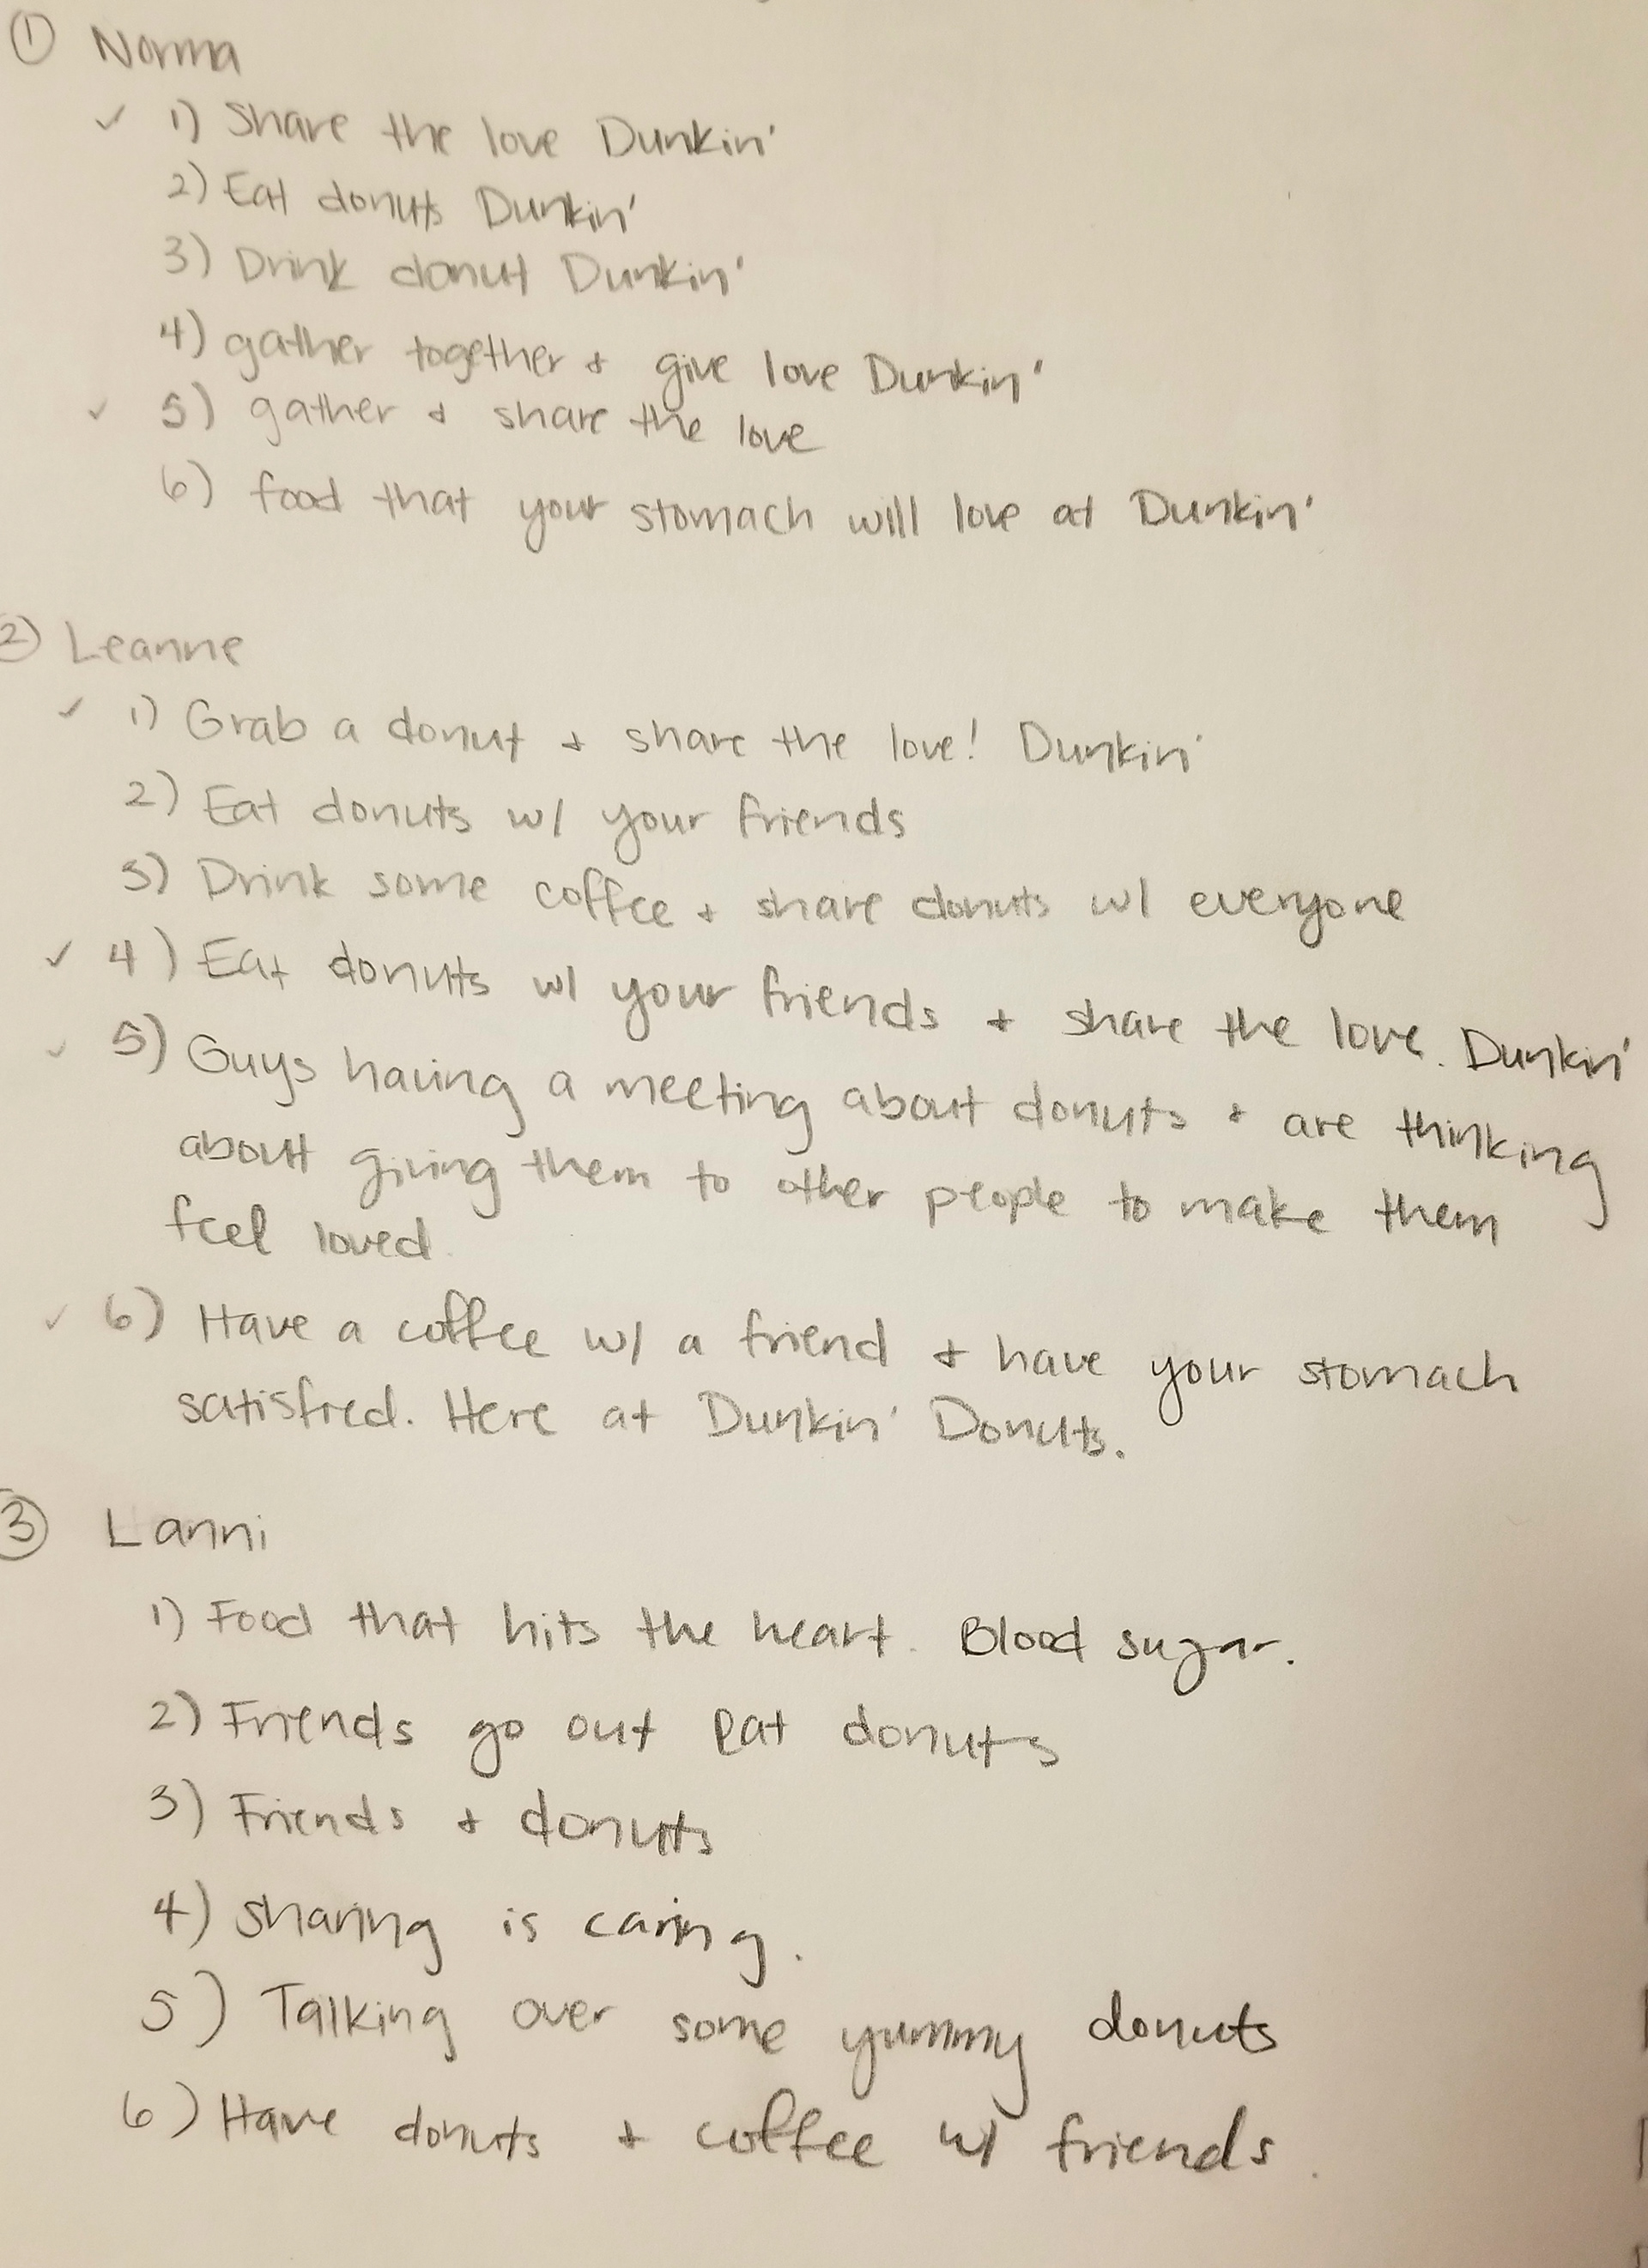 ① Norma
✓ 1) Share the love Dunkin'
2) Eat donuts Dunkin'
3) Drink donut Dunkin'
4) gather together + give love Dunkin'
✓ 5) gather + share the love
6) food that your stomach will love at Dunkin'
② Leanne
✓ 1) Grab a donut + share the love! Dunkin'
2) Eat donuts w/ your friends
3) Drink some coffee + share donuts w/ everyone
✓ 4) Eat donuts w/ your friends + share the love. Dunkin'
✓ 5) Guys having a meeting about donuts + are thinking
about giving them to other people to make them
feel loved.
✓ 6) Have a coffee w/ a friend + have your stomach
satisfied. Here at Dunkin' Donuts.
③ Lanni
1) Food that hits the heart. Blood sugar.
2) Friends go out eat donuts
3) Friends + donuts
4) sharing is caring.
5) Talking over some yummy donuts
6) Have donuts + coffee w/ friends.